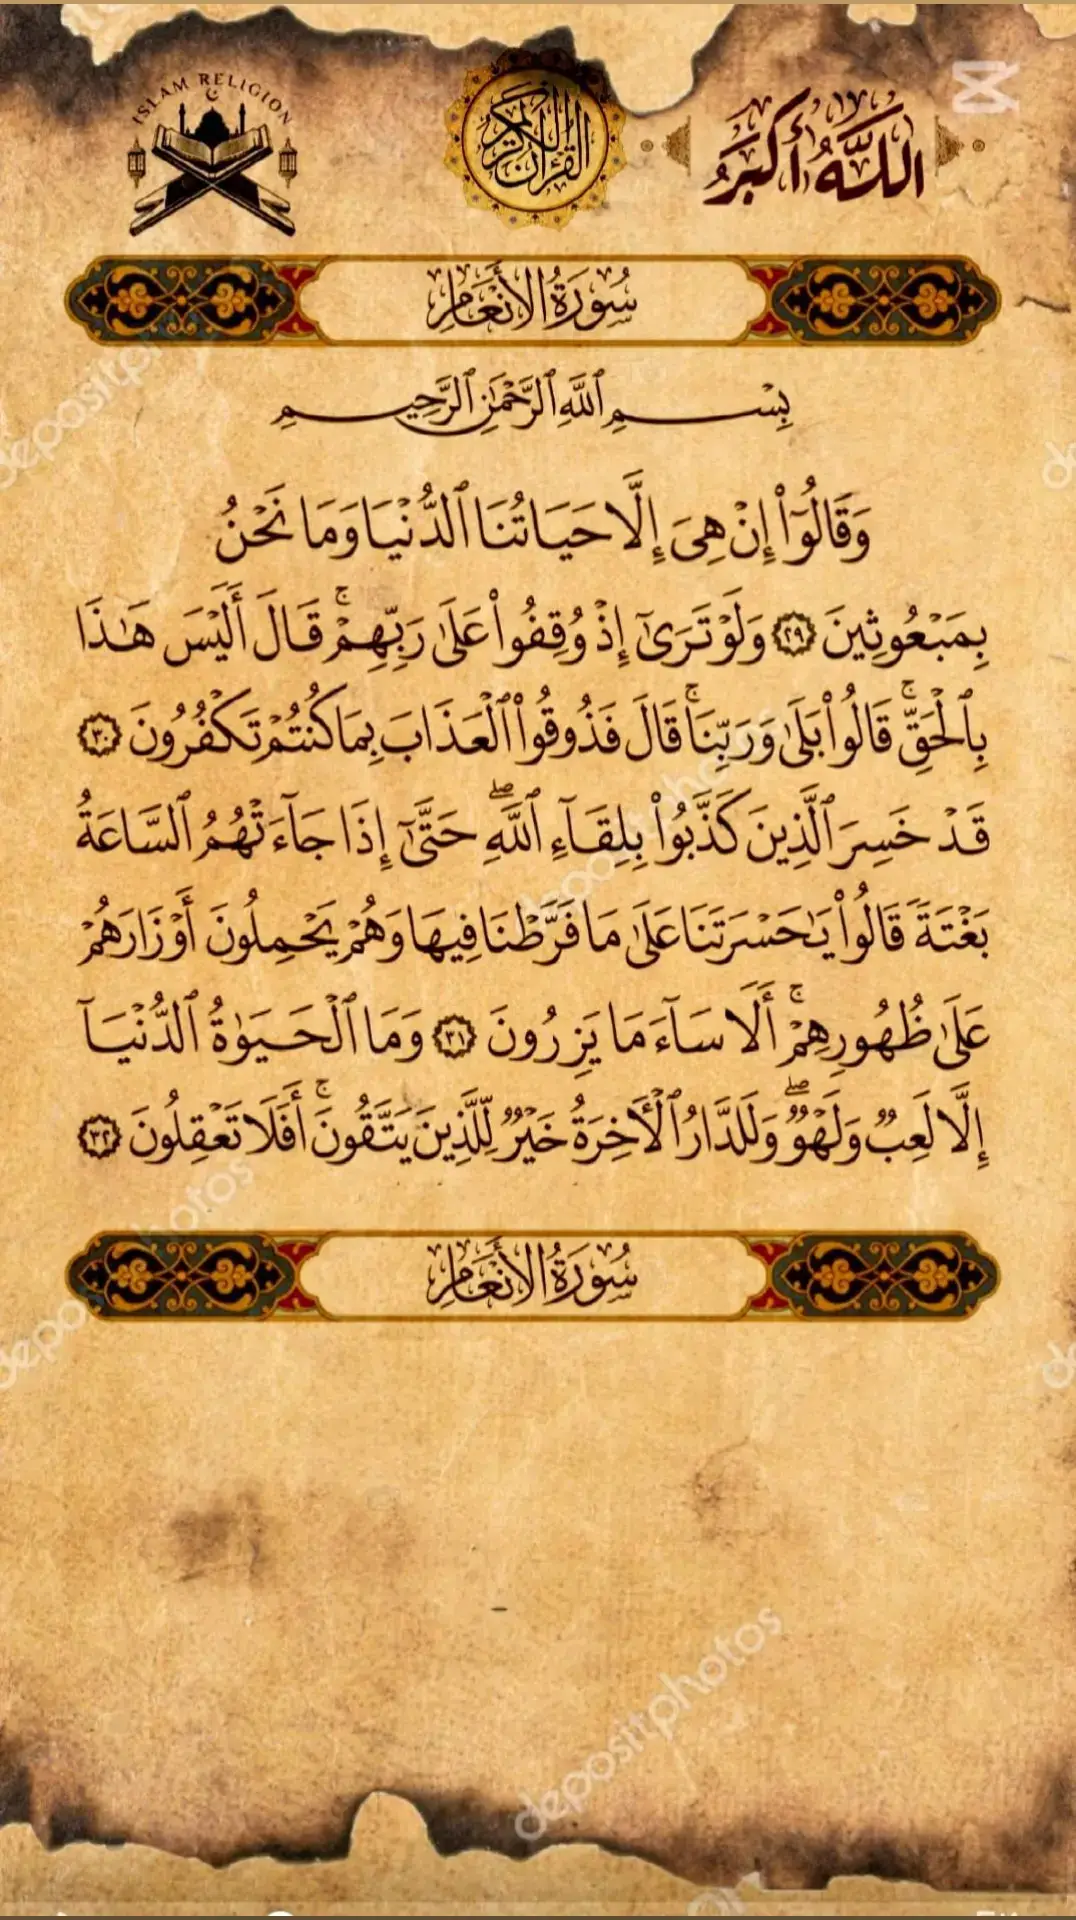 ISLAM RELIGION
القرآن الكريم
اللَّهُ أَكْبَرُ
سُورَةُ الأَنْعَامِ
بِسْمِ ٱللَّهِ ٱلرَّحْمَٰنِ ٱلرَّحِيمِ
وَقَالُوٓا۟ إِنْ هِىَ إِلَّا حَيَاتُنَا ٱلدُّنْيَا وَمَا نَحْنُ
بِمَبْعُوثِينَ ٢٩ وَلَوْ تَرَىٰٓ إِذْ وُقِفُوا۟ عَلَىٰ رَبِّهِمْ ۚ قَالَ أَلَيْسَ هَٰذَا
بِٱلْحَقِّ ۚ قَالُوا۟ بَلَىٰ وَرَبِّنَا ۚ قَالَ فَذُوقُوا۟ ٱلْعَذَابَ بِمَا كُنتُمْ تَكْفُرُونَ ٣٠
قَدْ خَسِرَ ٱلَّذِينَ كَذَّبُوا۟ بِلِقَآءِ ٱللَّهِ ۖ حَتَّىٰٓ إِذَا جَآءَتْهُمُ ٱلسَّاعَةُ
بَغْتَةً قَالُوا۟ يَٰحَسْرَتَنَا عَلَىٰ مَا فَرَّطْنَا فِيهَا وَهُمْ يَحْمِلُونَ أَوْزَارَهُمْ
عَلَىٰ ظُهُورِهِمْ ۚ أَلَا سَآءَ مَا يَزِرُونَ ٣١ وَمَا ٱلْحَيَوٰةُ ٱلدُّنْيَآ
إِلَّا لَعِبٌ وَلَهْوٌ ۖ وَلَلدَّارُ ٱلْءَاخِرَةُ خَيْرٌ لِّلَّذِينَ يَتَّقُونَ ۚ أَفَلَا تَعْقِلُونَ ٣٢
سُورَةُ الأَنْعَامِ
depositphotos